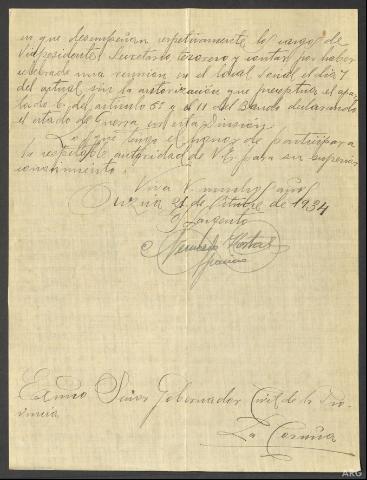 en que desempeñan respetivamente los cargos de
Vicepresidente, Secretario, tesorero y contador, por haber
celebrado una reunion en el local social el día 7
del actual sin la autorización que preceptua el apar
tado 6º del articulo 51 y el 11 del Bando declarando
el estado de Guerra en esta Division
Lo que tengo el honor de participar a
la respetable autoridad de V.E. para su superior
conocimiento.
Viva V. muchos años
21 de Octubre de 1934
El Sargento
Excmo Señor Gobernador Civil de la Pro-
vincia
La Coruña
ARG